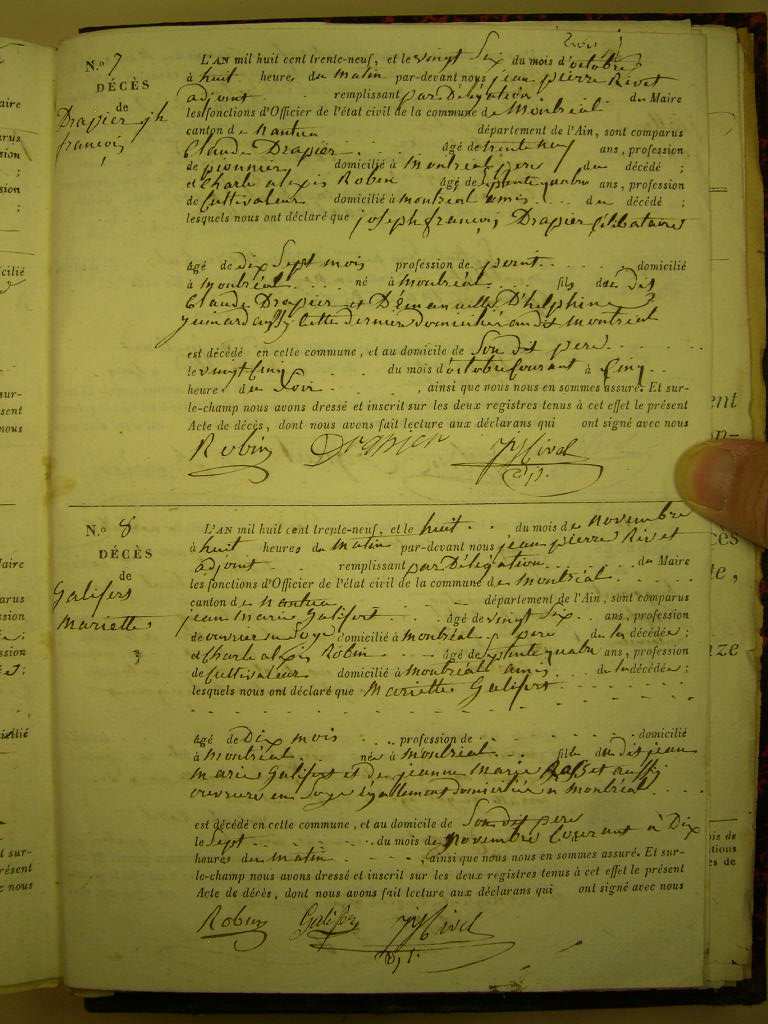 N.o 7
DÉCÈS
de
Drapier jh
françois
L'AN mil huit cent trente-neuf, et le vingt Six du mois d'octobre
à huit heures du matin par-devant nous jean pierre Rivet
adjoint remplissant par Délégation du Maire
les fonctions d'Officier de l'état civil de la commune de Montréal
canton de nantua département de l'Ain, sont comparus
Claude Drapier âgé de trente neuf ans, profession
de domicilié à Montréal pere du décédé ;
et Charle alexis Robin âgé de ans, profession
de Cultivateur domicilié à montréal amis du décédé ;
lesquels nous ont déclaré que joseph françois Drapier Célibataire
âgé de dix Sept mois profession de point domicilié
à Montréal né à Montréal fils du dit
Claude Drapier et De Dhelphine
cette derniere domiciliée au dit montréal
est décédé en cette commune, et au domicile de Son dit pere
le vingt Cinq du mois d'octobre Courant à Cinq
heures du Soir, ainsi que nous nous en sommes assuré. Et sur-
le-champ nous avons dressé et inscrit sur les deux registres tenus à cet effet le présent
Acte de décès, dont nous avons fait lecture aux déclarans qui ont signé avec nous
Robin Drapier JP Rivet
adj.
N.o 8
DÉCÈS
de
Galifert
Mariette
L'AN mil huit cent trente-neuf, et le huit du mois de novembre
à huit heures du matin par-devant nous jean pierre Rivet
adjoint remplissant par Délégation du Maire
les fonctions d'Officier de l'état civil de la commune de montréal
canton de Nantua département de l'Ain, sont comparus
jean Marie Galifert âgé de vingt Six ans, profession
de ouvrier en Soye domicilié à montréal pere de la décédée ;
et Charle alexis Robin âgé de ans, profession
de Cultivateur domicilié à montréal amis de la décédée ;
lesquels nous ont déclaré que Mariette Galifert
âgé de Dix mois profession de domicilié
à Montréal née à Montréal fille du dit jean
Marie Galifert et de jeanne Marie aussi
ouvriere en Soye également domiciliée a montréal
est décédé en cette commune, et au domicile de Son dit pere
le Sept du mois de novembre Courant à Dix
heures du matin, ainsi que nous nous en sommes assuré. Et sur-
le-champ nous avons dressé et inscrit sur les deux registres tenus à cet effet le présent
Acte de décès, dont nous avons fait lecture aux déclarans qui ont signé avec nous
Robin Galifert JP Rivet
adj.